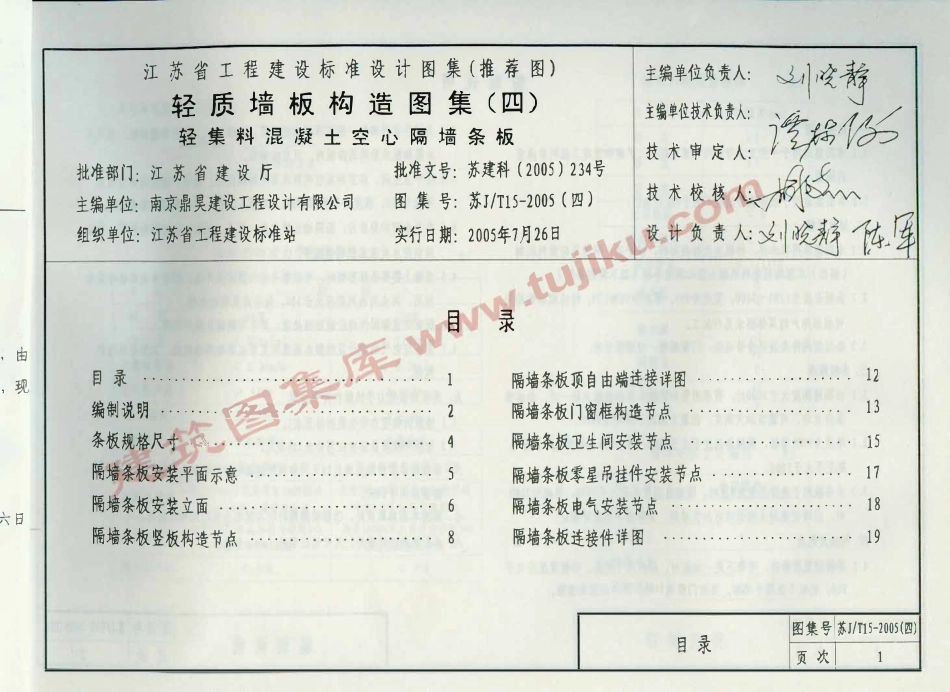 江苏省工程建设标准设计图集(推荐图)
轻质墙板构造图集(四)
轻集料混凝土空心隔墙条板
批准部门: 江苏省建设厅 批准文号: 苏建科(2005)234号
主编单位: 南京鼎昊建设工程设计有限公司 图集号: 苏J/T15-2005(四)
组织单位: 江苏省工程建设标准站 实行日期: 2005年7月26日
主编单位负责人: 刘晓静
主编单位技术负责人:
技术审定人:
技术校核人:
设计负责人: 刘晓静 陈军
目录
目录 1
编制说明 2
条板规格尺寸 4
隔墙条板安装平面示意 5
隔墙条板安装立面 6
隔墙条板竖板构造节点 8
隔墙条板顶自由端连接详图 12
隔墙条板门窗框构造节点 13
隔墙条板卫生间安装节点 15
隔墙条板零星吊挂件安装节点 17
隔墙条板电气安装节点 18
隔墙条板连接件详图 19
目录
图集号 苏J/T15-2005(四)
页次 1
建筑图集库 www.tujiku.com
、由
,现
六日